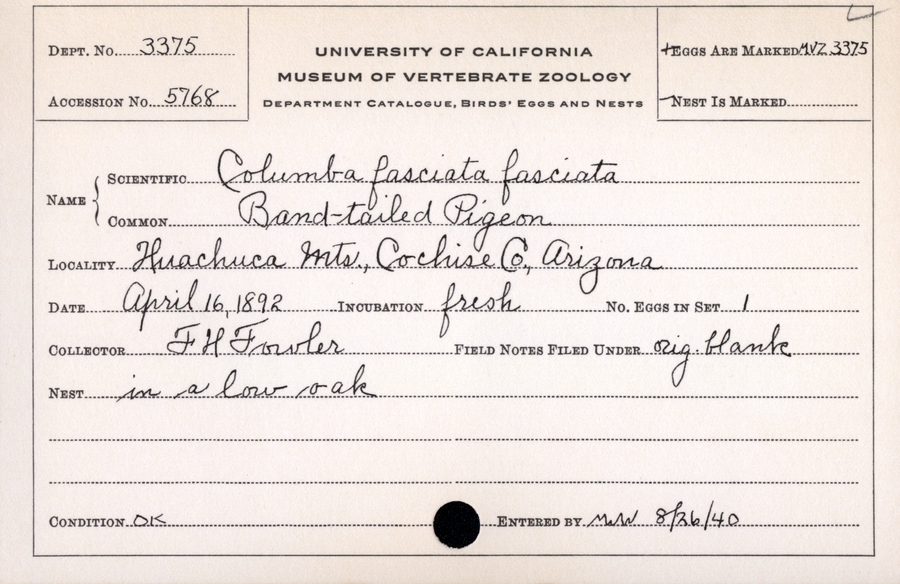 DEPT. NO. 3375
ACCESSION NO. 5768
UNIVERSITY OF CALIFORNIA
MUSEUM OF VERTEBRATE ZOOLOGY
DEPARTMENT CATALOGUE, BIRDS' EGGS AND NESTS
+EGGS ARE MARKED MVZ 3375
NEST IS MARKED
NAME
SCIENTIFIC Columba fasciata fasciata
COMMON Band-tailed Pigeon
LOCALITY Huachuca Mts., Cochise Co., Arizona
DATE April 16, 1892 INCUBATION fresh NO. EGGS IN SET 1
COLLECTOR F H Fowler FIELD NOTES FILED UNDER orig. blank
NEST in a low oak
CONDITION OK ENTERED BY 8/26/40